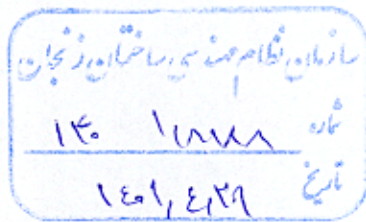 سازمان نظام مهندسی ساختمان زنجان
شماره ۱۴۰
تاریخ ۱۴۰۱,۴,۲۹